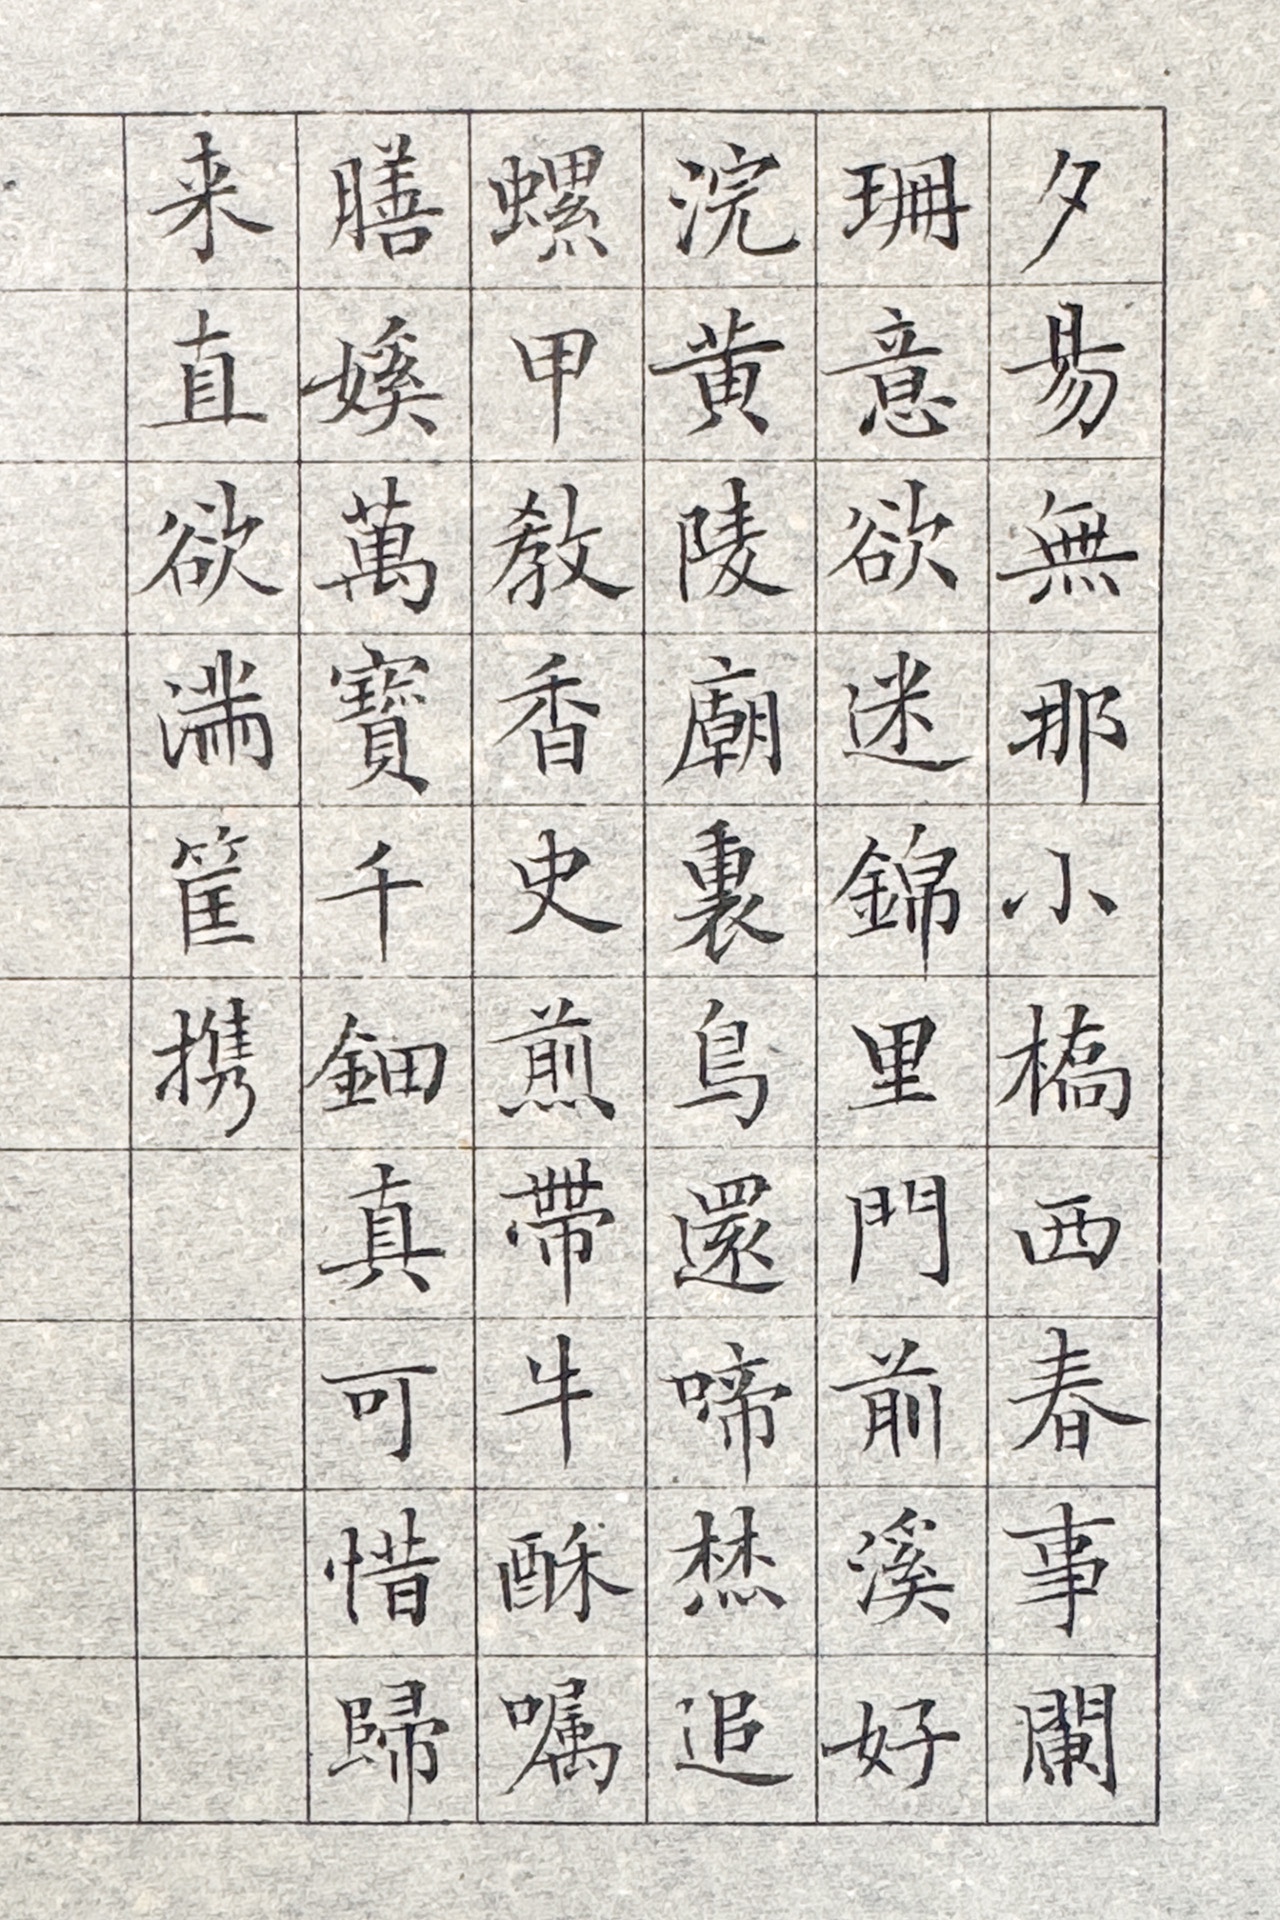 夕昜無那小橋西春事闌
珊意欲迷錦里門前溪好
浣黃陵廟裏鳥還啼㷊追
螺甲教香史煎帶牛酥嘱
膳娭萬寶千鈿真可惜歸
来直欲满筐携